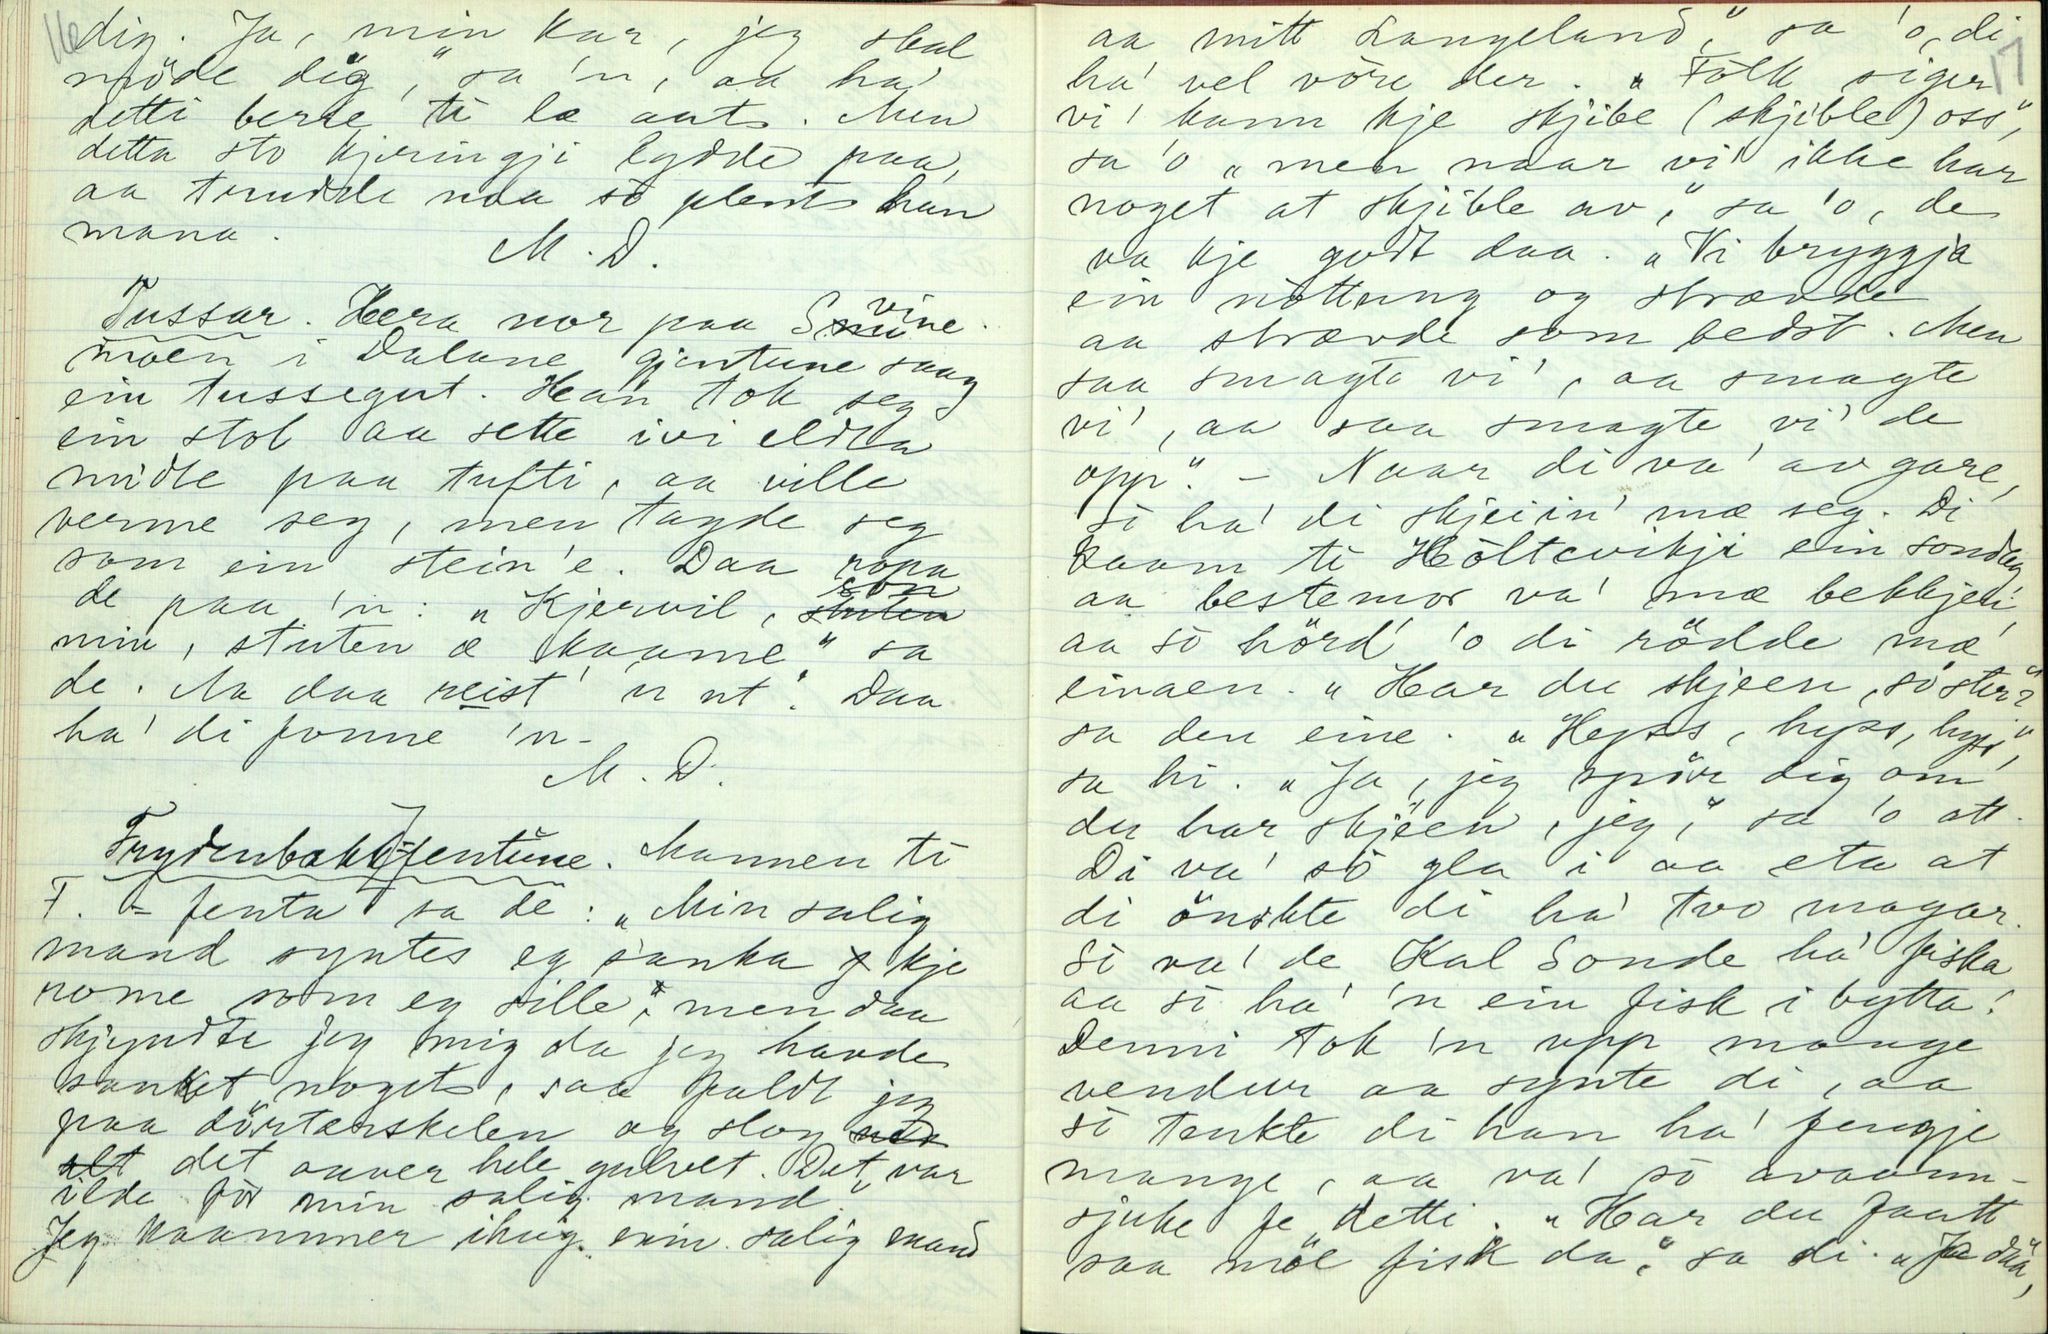 16
dig. Ja, min kar, jeg skal
möde dig," sa 'n, aa ha'
detti berre ti læ aat. Men
detta sto kjeringji lydde paa,
aa trudde naa so plent han
mana.
M. D.
Tussar. Hera nor paa Svine-
moen i Dalane gjentune saag
ein tussegut. Han tok seg
ein stol aa sette ivi elden
midle paa tufti, aa ville
verme seg, men tagde seg
som ein stein'e. Daa ropa
de paa 'n: "Kjervil, son
min, stuten æ kaame," sa
de. Aa daa reist' 'n ut. Daa
ha' di fonne 'n.
M. D.
Frydenbakk-jentune. Mannen ti
F. - jenta sa de: "Min salig
mand syntes eg sanka kje
rome som eg sille," men daa
skjyndte jeg mig da jeg havde
sanket noget, saa faldt jeg
paa dörtærskelen og slog
det auver hele gulvet. Det var
ilde for min salig mand."
Jeg kaammer ihug min salig mand
17
aa mitt Langeland," sa 'o, di
ha' vel vöre der. "Folk siger
vi' kann kje skjibe (skjible) oss",
sa 'o "men naar vi' ikke har
noget at skjible av," sa 'o, de
va kje godt daa. "Vi bryggja
ein nottung og strævde
aa strævde som bedst. Men
saa smagte vi', aa smagte
vi', aa saa smagte vi' de
opp". - Naar di va' av gare,
so ha' di skjeiin' mæ seg. Di
kaam ti Höltevikji ein sondag
aa bestemor va' mæ bekkjen',
aa so hörd' 'o di rödde mæ
einaen. "Har du skjeen, söster?"
sa den eine. "Hyss, hyss, hyss",
sa hi. "Ja, jeg spör dig om
du har skjeen, jeg," sa 'o att.
Di va' so gla i aa eta at
di önskte di ha' tvo magar.
So va' de Kal Sonde ha' fiska
aa so ha' 'n ein fisk i bytta.
Denni tok 'n upp mange
vendur aa synte di, aa
so tenkte di han ha' fengje
mange, aa va' so avaaun-
sjuke fe detti. "Har du faatt
saa möl fisk da," sa di. "Ja daa",